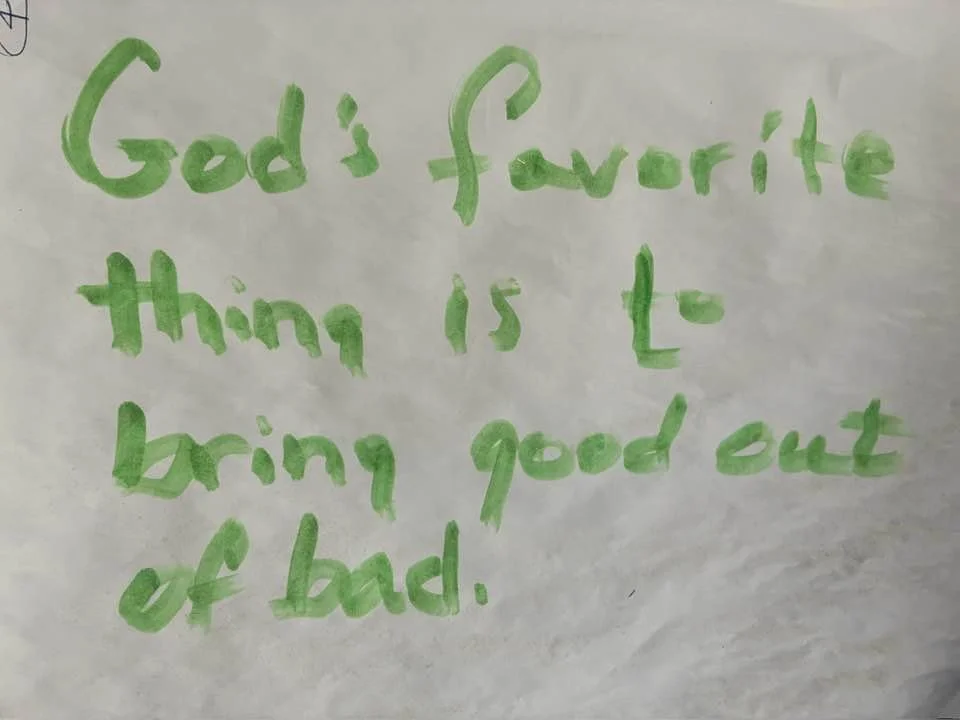 God's favorite
thing is to
bring good out
of bad.